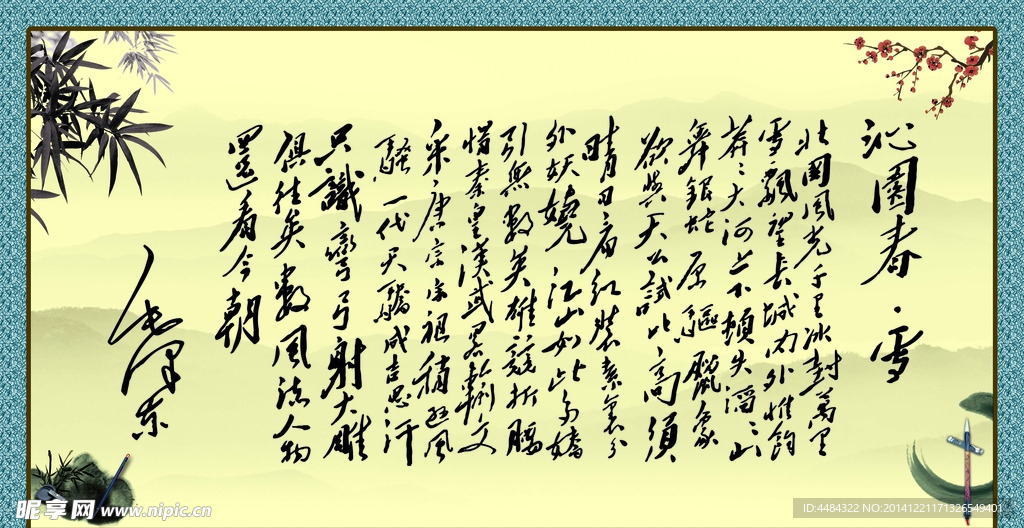 沁園春·雪
北國風光千里冰封萬里
雪飄望長城內外惟餘
莽〻大河上下頓失滔〻山
舞銀蛇原驅臘象
欲與天公試比高須
晴日看紅裝素裹分
外妖嬈江山如此多嬌
引無數英雄競折腰
惜秦皇漢武略輸文
采唐宗宋祖稍遜風
騷一代天驕成吉思汗
只識彎弓射大雕
俱往矣數風流人物
還看今朝
毛澤東
昵享网 www.nipic.cn
ID:4484322 NO:20141221171326549401